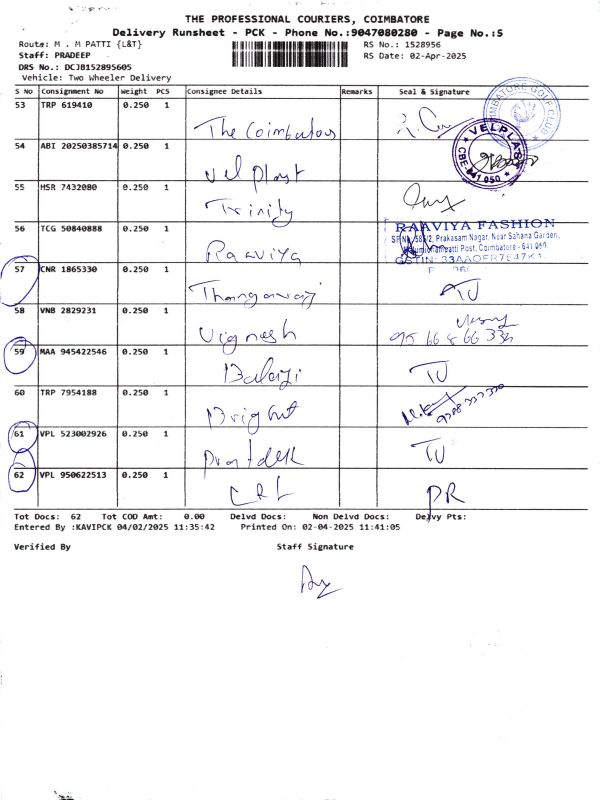 THE PROFESSIONAL COURIERS, COIMBATORE
Delivery Runsheet - PCK - Phone No.:9047080280 - Page No.:5
Route: M . M PATTI {L&T}
RS No.: 1528956
Staff: PRADEEP
RS Date: 02-Apr-2025
DRS No.: DCJB152895605
Vehicle: Two Wheeler Delivery
S No Consignment No Weight PCS Consignee Details Remarks Seal & Signature
53 TRP 619410 0.250 1 The Coimbatore
COIMBATORE GOLF CLUB
54 ABI 20250385714 0.250 1 Vel plast
VELPLAST
CBE-641 050
55 HSR 7432080 0.250 1 Trinity
56 TCG 50840888 0.250 1 Raaviya
RAAVIYA FASHION
Prakasam Nagar, Near Sahana Garden,
Post, Coimbatore - 641 049.
57 CNR 1865330 0.250 1 TU
58 VNB 2829231 0.250 1 Vignesh
59 MAA 945422546 0.250 1 Balaji TU
60 TRP 7954188 0.250 1 Bright
61 VPL 523002926 0.250 1 TU
62 VPL 950622513 0.250 1 CRL DR
Tot Docs: 62 Tot COD Amt: 0.00 Delvd Docs: Non Delvd Docs: Delvy Pts:
Entered By :KAVIPCK 04/02/2025 11:35:42 Printed On: 02-04-2025 11:41:05
Verified By Staff Signature